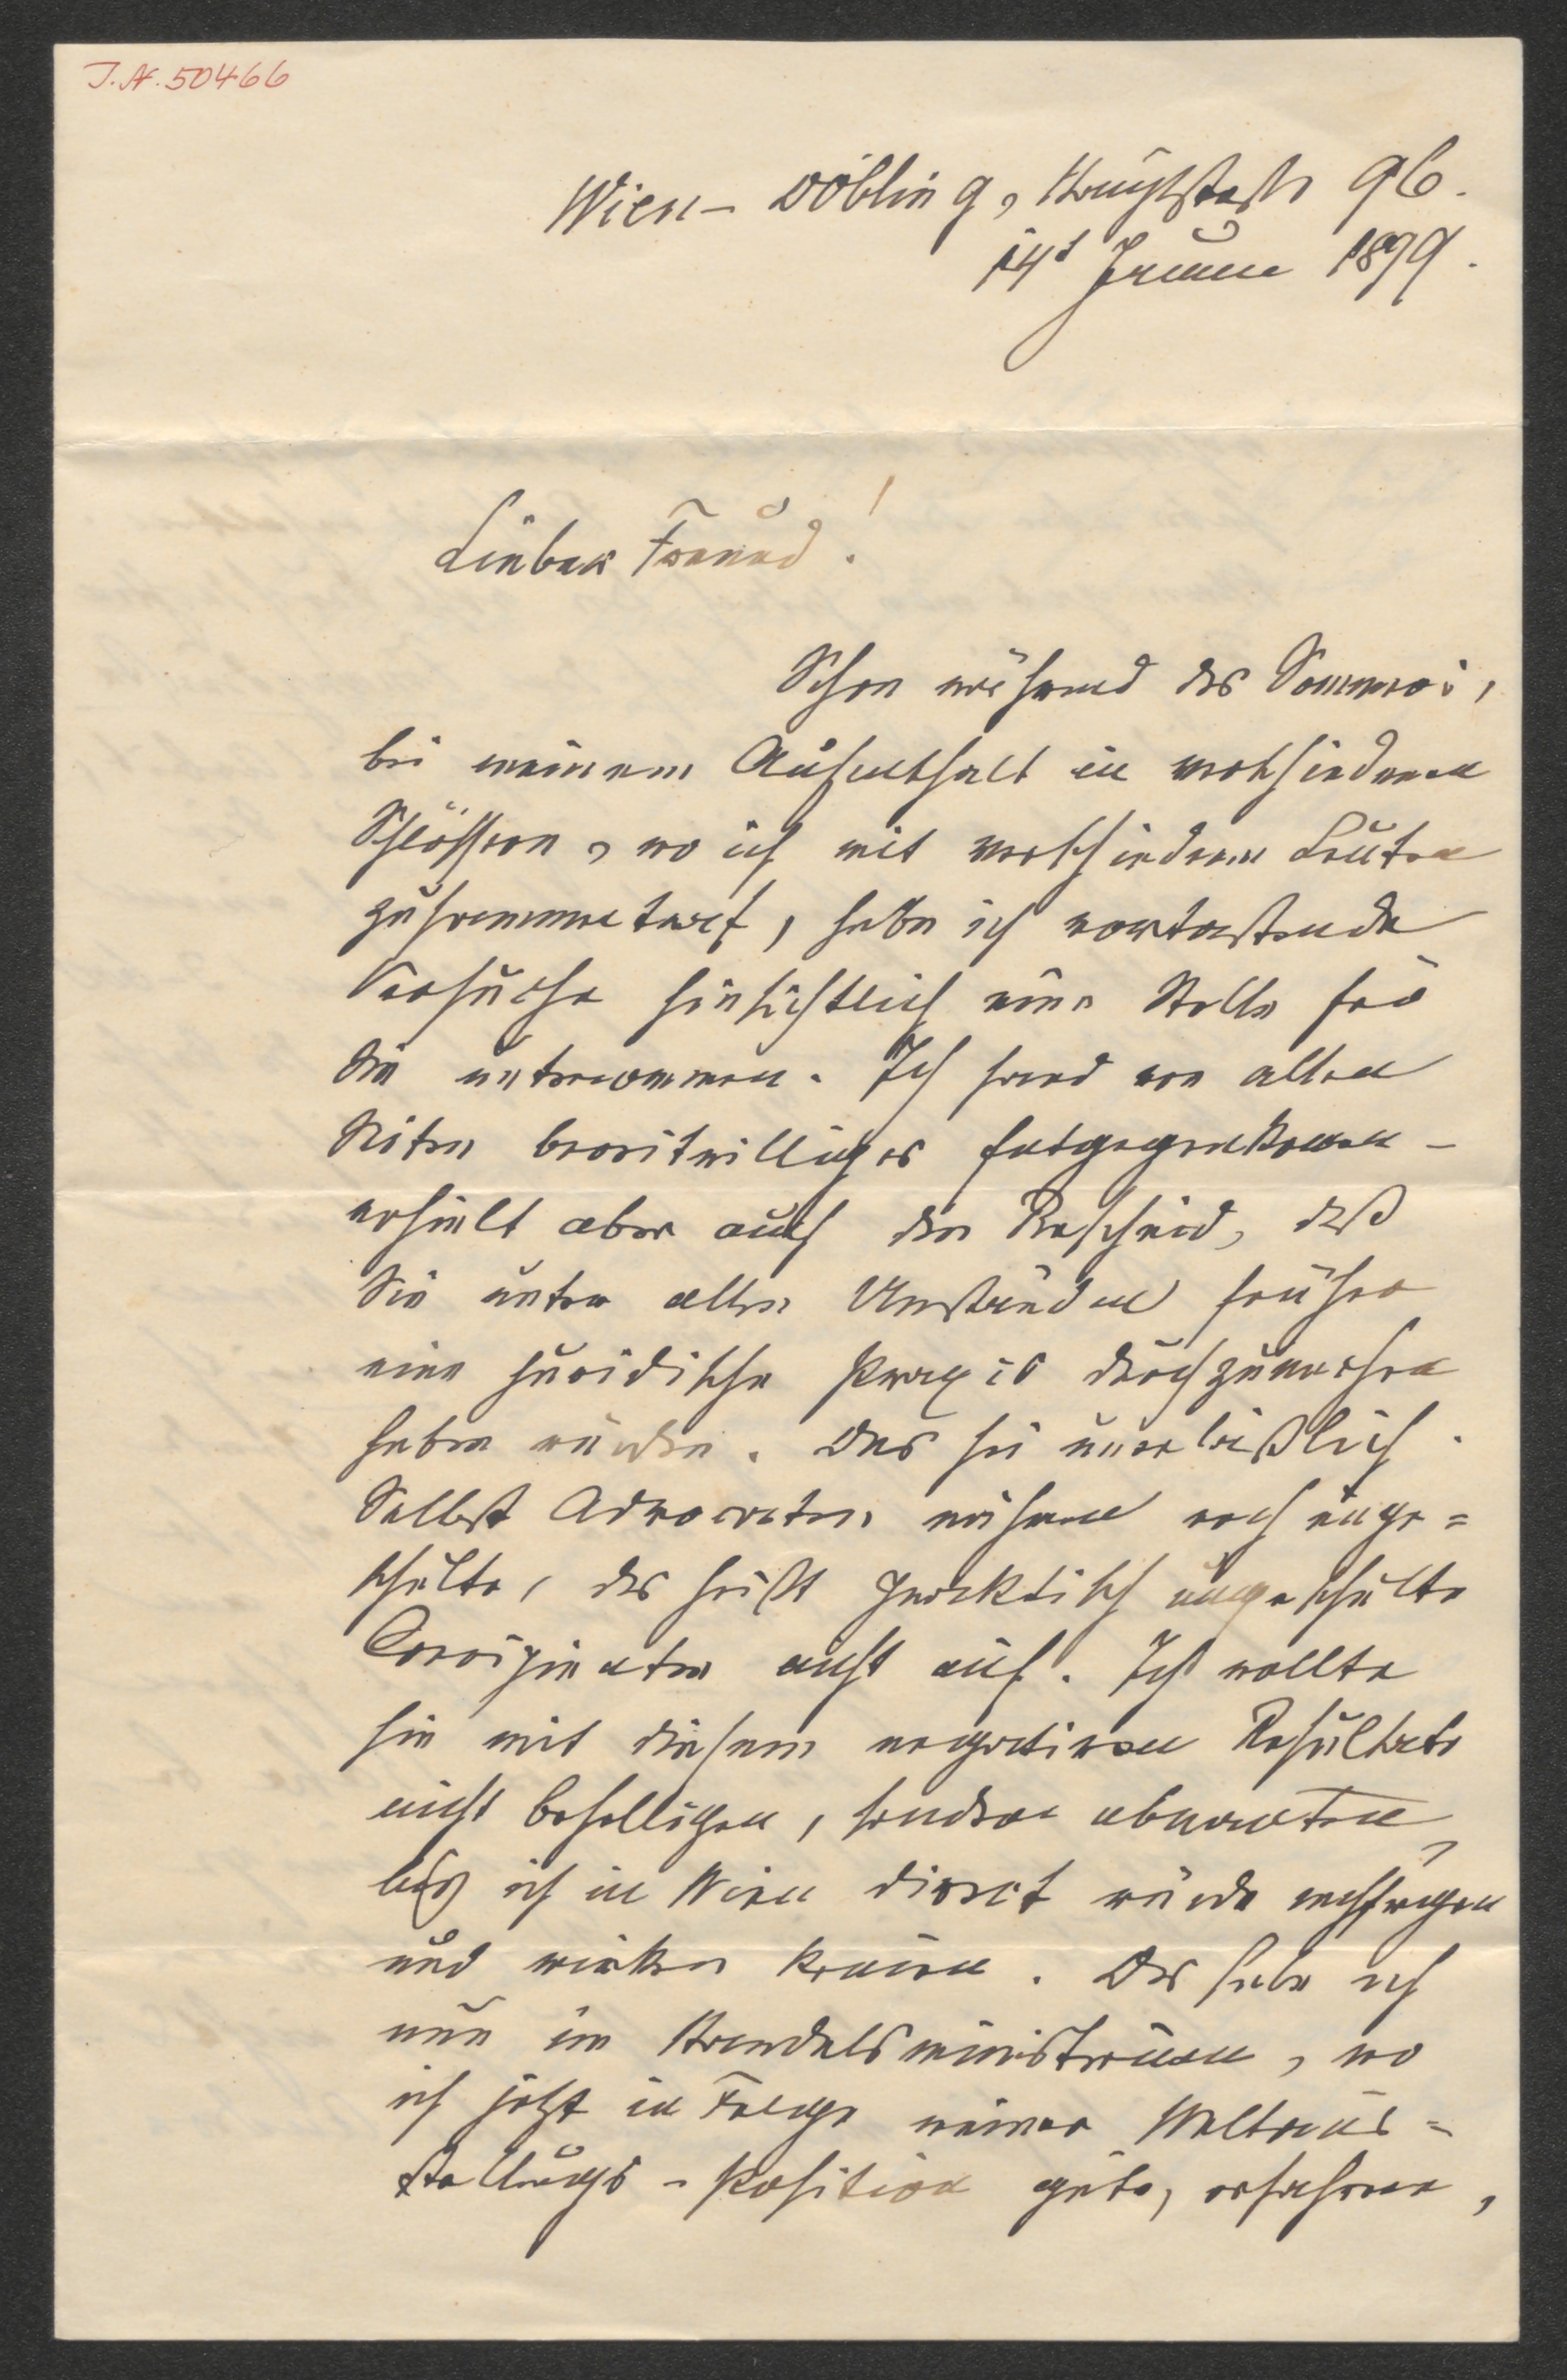 J.N. 50466
Wien - Döbling, Hauptstraße 96.
14t Januar 1899.
Lieber Freund!
Schon während des Sommers,
bei meinem Aufenthalt in verschiedenen
Schlössern, wo ich mit verschiedenen Leuten
zusammentraf, habe ich vortastende
Versuche hinsichtlich einer Stelle für
Sie unternommen. Ich fand von allen
Seiten bereitwilliges Entgegenkommen -
erhielt aber auch den Bescheid, daß
Sie unter allen Umständen früher
eine juridische Praxis durchzumachen
haben würden. Das sei unerläßlich.
Selbst Advocaten nähmen noch unge=
schulte, das heißt praktisch ungeschulte
Concipienten nicht auf. Ich wollte
Sie mit diesem negativen Resultate
nicht behelligen, sondern abwarten,
bis ich in Wien direct würde nachfragen
und wirken können. Das habe ich
nun im Handelsministerium, wo
ich jetzt in Folge meiner Weltaus=
stellungs-Position gute, erfahrene,